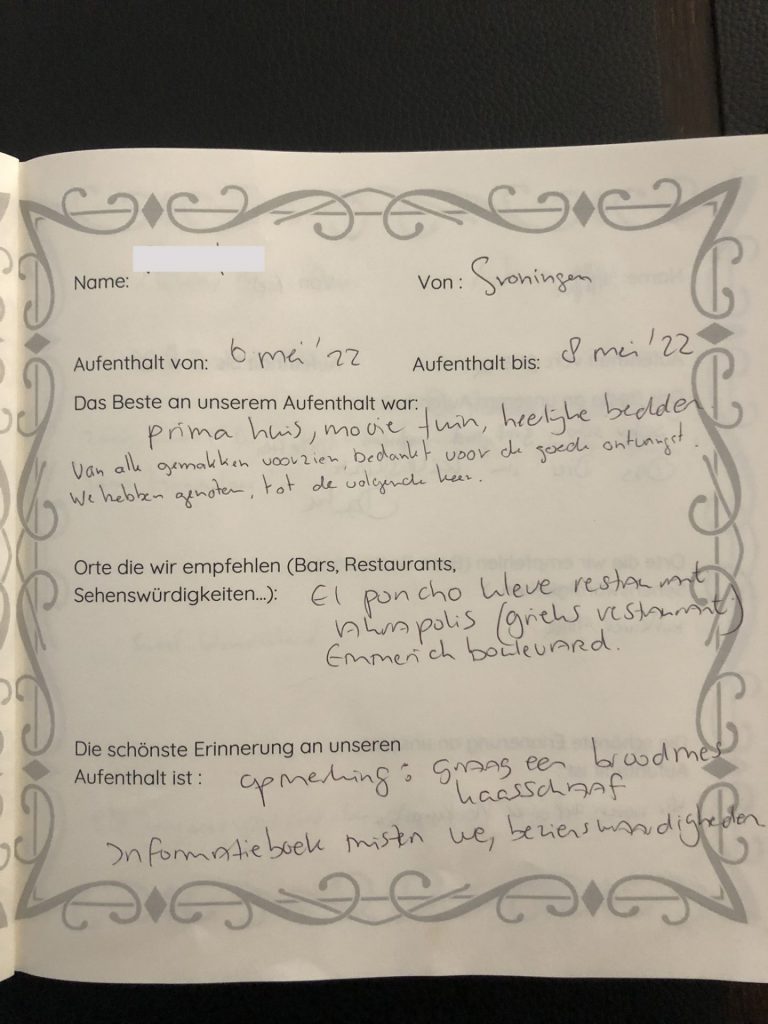 Name:
Von : Groningen
Aufenthalt von: 6 mei '22
Aufenthalt bis: 8 mei '22
Das Beste an unserem Aufenthalt war:
prima huis, mooie tuin, heerlijke bedden.
Van alle gemakken voorzien, bedankt voor de goede ontvangst.
We hebben genoten, tot de volgende keer.
Orte die wir empfehlen (Bars, Restaurants,
Sehenswürdigkeiten...): El poncho kleve restaurant
Akrapolis (grieks restaurant)
Emmerich boulevard.
Die schönste Erinnerung an unseren
Aufenthalt ist : opmerking : graag een broodmes
kaasschaaf
Informatieboek misten we, bezienswaardigheden